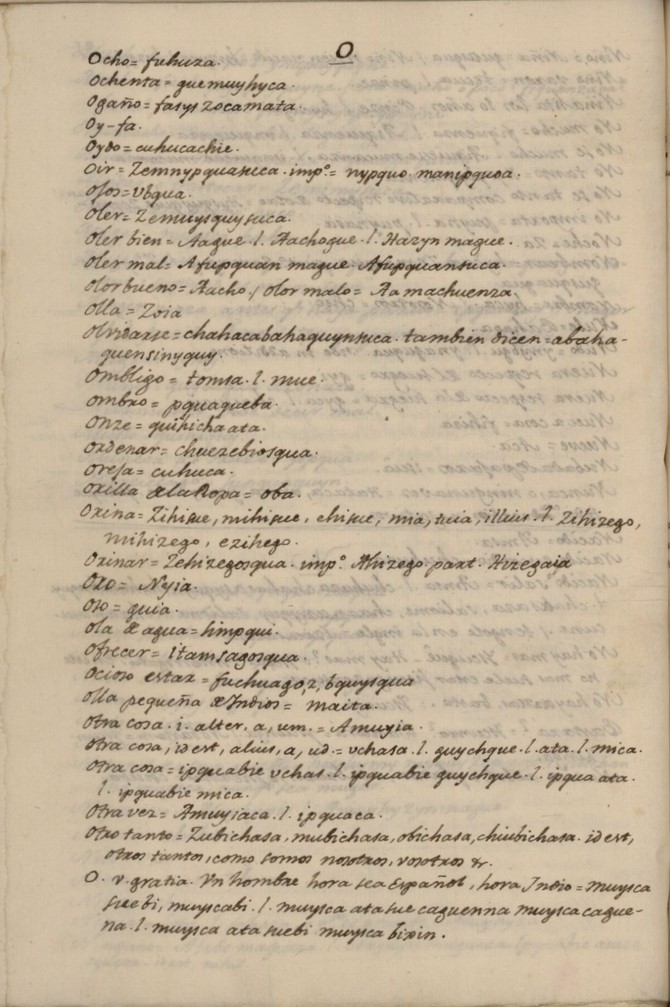 O.
Ocho = fuhuza.
Ochenta = guemuyhyca.
Ogaño = fasyszocamata.
Oy = fa.
Oydo = cuhucachie.
Oir = Zemnypquasuca. impº = nypquo. manipquoa.
Ojos = Vbqua.
Oler = Zemuysquysuca.
Oler bien = Aague. l. Aachogue. l. Hazyn mague.
Oler mal = Afupquan mague. Afupquansuca.
Olor bueno = Aacho. / Olor malo = Aamachuenza.
Olla = Zoia
Olvidarse = chahacabahaquynsuca. tambien dicen = abaha-
quensinyquy.
Ombligo = tomsa. l. mue.
Ombro = pquaqueba.
Onze = quihichaata.
Ordenar = chuezebiosqua.
Oreja = cuhuca.
Orilla de la Ropa = oba.
Orina = Zihisue, mihisue, chisue, mia, tuia, illius. l. Zihizego,
mihizego, ezihego.
Orinar = Zehizegosqua. impº. Hizego. part. Hizegaia
Oro = Nyia.
Oso = guia.
Ola de agua = himpqui.
Ofrecer = itamsagosqua.
Ocioso estar = fuchuago, z, bquysqua
Olla pequeña de Indios = maita.
Otra cosa. i. alter, a, um. = Amuyia.
Otra cosa, id est, alius, a, ud. = vchasa. l. guychque. l. ata. l. mica.
Otra cosa = ipquabie vchas. l. ipquabie guychque. l. ipqua ata.
l. ipquabie mica.
Otra vez = Amuysaca. l. ipquaca.
Otro tanto = Zubichasa, mubichasa, obichasa, chiubichasa. id est,
otros tantos, como somos nosotros, vosotros &.
O. v. gratia. Vn hombre hora sea Español, hora Indio = muysca
suebi, muyscabi. l. muysca ata sue caguenna muysca cague-
na. l. muysca ata suebi muysca bixin.